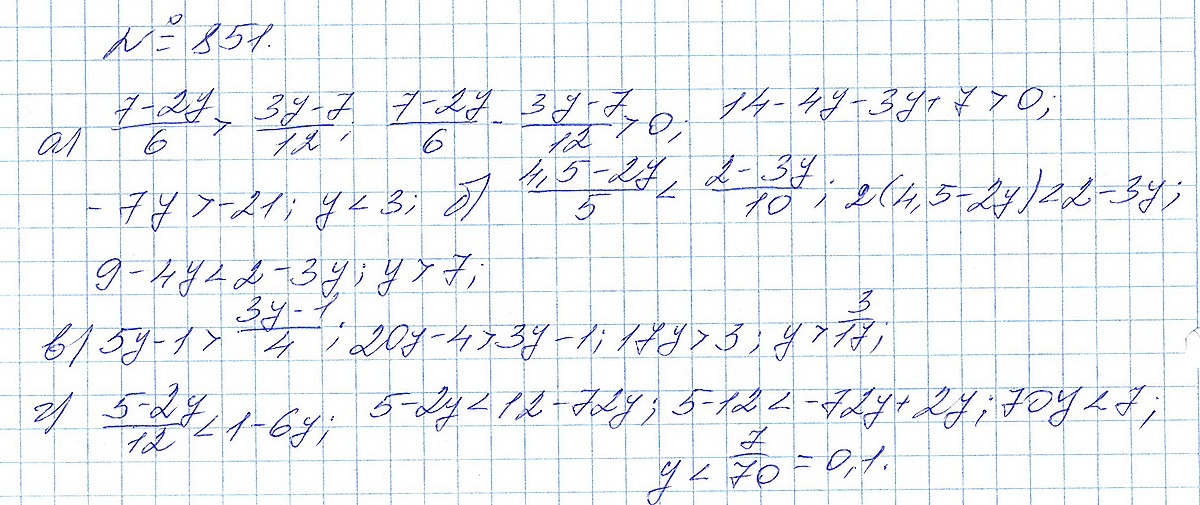 № 851.
а) (7-2y)/6 > (3y-7)/12; (7-2y)/6 - (3y-7)/12 > 0; 14-4y-3y+7>0;
-7y>-21; y<3; б) (4,5-2y)/5 < (2-3y)/10; 2(4,5-2y)<2-3y;
9-4y<2-3y; y>7;
в) 5y-1 > (3y-1)/4; 20y-4>3y-1; 17y>3; y > 3/17;
г) (5-2y)/12 < 1-6y; 5-2y<12-72y; 5-12<-72y+2y; 70y<7;
y < 7/70 = 0,1.